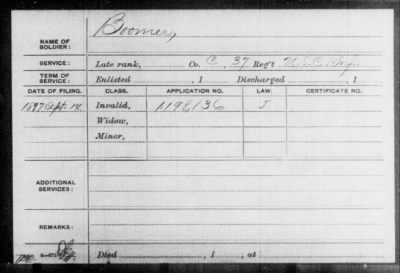 NAME OF SOLDIER: Boomer,
SERVICE: Late rank, Co. C, 37 Reg't U.S.C. Inf.
TERM OF SERVICE: Enlisted , 1 Discharged , 1
DATE OF FILING. CLASS. APPLICATION NO. LAW. CERTIFICATE NO.
1897 Sept. 14. Invalid, 1198136 J
Widow,
Minor,
ADDITIONAL SERVICES:
REMARKS:
Died , 1 , at